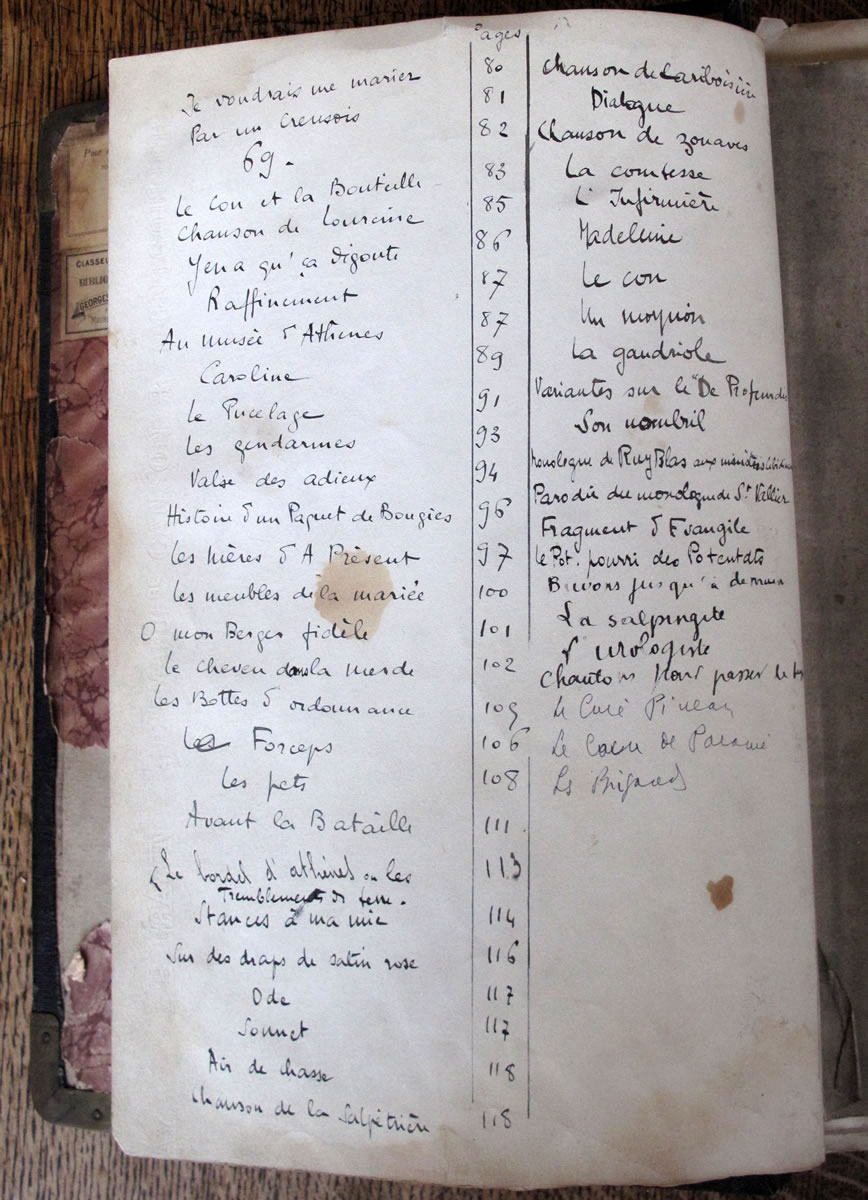 Pages
Je voudrais me marier 80
Par un Creusois 81
69. 82
Le Con et la Bouteille 83
Chanson de Lourcine 85
Y en a qu'ça dégoute 86
Raffinement 87
Au musée d'Athènes 87
Caroline 89
Le Pucelage 91
Les gendarmes 93
Valse des adieux 94
Histoire d'un Paquet de Bougies 96
Les Mères d'A Présent 97
Les meubles de la mariée 100
O mon Berger fidèle 101
Le cheveu dans la merde 102
Les Bottes d'ordonnance 105
Les Forceps 106
Les pets 108
Avant la Bataille 111
Le bordel d'athènes ou les 113
Tremblements de terre.
Stances à ma mie 114
Sur des draps de satin rose 116
Ode 117
Sonnet 117
Air de chasse 118
Chanson de la Salpêtrière 118
Chanson de Lariboisière
Dialogue
Chanson de zouaves
La comtesse
L'Infirmière
Madeleine
Le con
Un moynion
La gaudriole
Variantes sur le "De Profundis
Son nombril
Monologue de Ruy Blas aux
Parodie du monologue de St Vallier
Fragment d'Evangile
Le Pot. pourri des Potentats
Buvons jusqu'à demain
La salpingite
L'urologiste
Chantons pour passer le
Le Curé Pineau
Le Coeur de Paramé
Les Brigands
CLASSEU
GEORGES